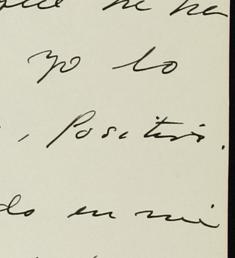 que me ha
yo lo
, Positivo.
do en mi